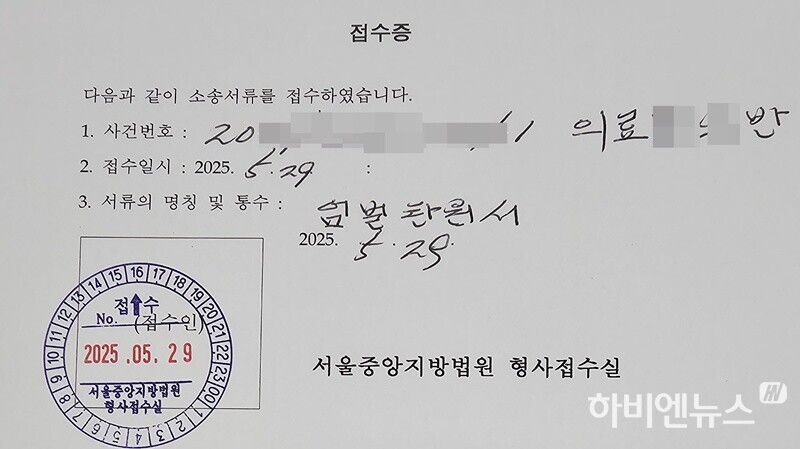 접수증
다음과 같이 소송서류를 접수하였습니다.
1. 사건번호 : 20 1 의료 반
2. 접수일시 : 2025. 5. 29 :
3. 서류의 명칭 및 통수 : 엄벌탄원서
2025. 5. 29.
13 14 15 16 17 18 19 20 21 22 23 00 1 2 3 4 5 6 7 8 9 10 11 12
접수
No.
(접수인)
2025.05.29
서울중앙지방법원
형사접수실
서울중앙지방법원 형사접수실
하비엔뉴스 HN